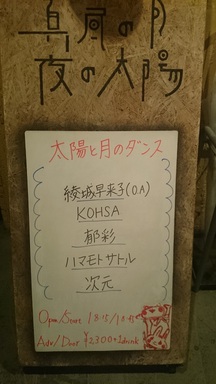 真昼の月
夜の太陽
太陽と月のダンス
綾城早来子(OA)
KOHSA
郁彩
ハマモトサトル
次元
Open/Start 18:15/18:45
Adv/Door ¥2,300+1drink